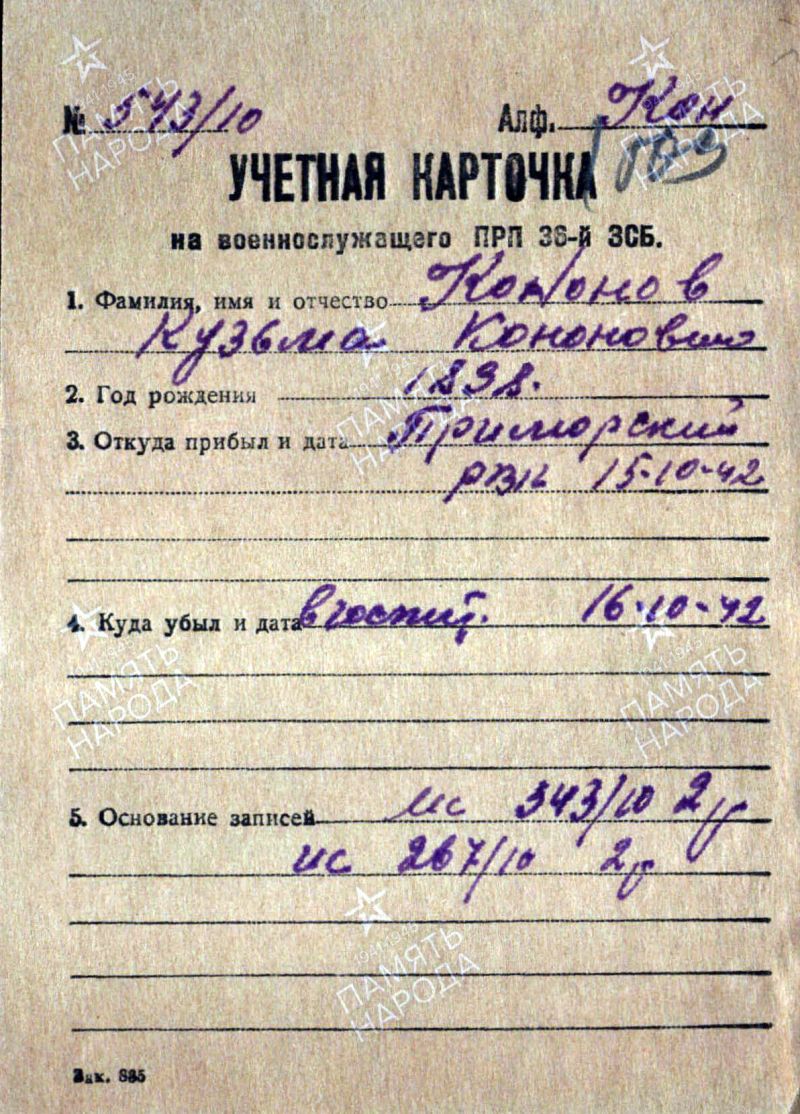 № 543/10 Алф. Кон
УЧЕТНАЯ КАРТОЧКА
на военнослужащего ПРП 36-й ЗСБ.
1. Фамилия, имя и отчество Кононов
Кузьма Кононович
2. Год рождения 1898.
3. Откуда прибыл и дата Приморский
РВК 15-10-42
4. Куда убыл и дата в госпит. 16-10-42
5. Основание записей ис 343/10 2р
ис 267/10 2р
Зак. 835
1941-1945
ПАМЯТЬ
НАРОДА